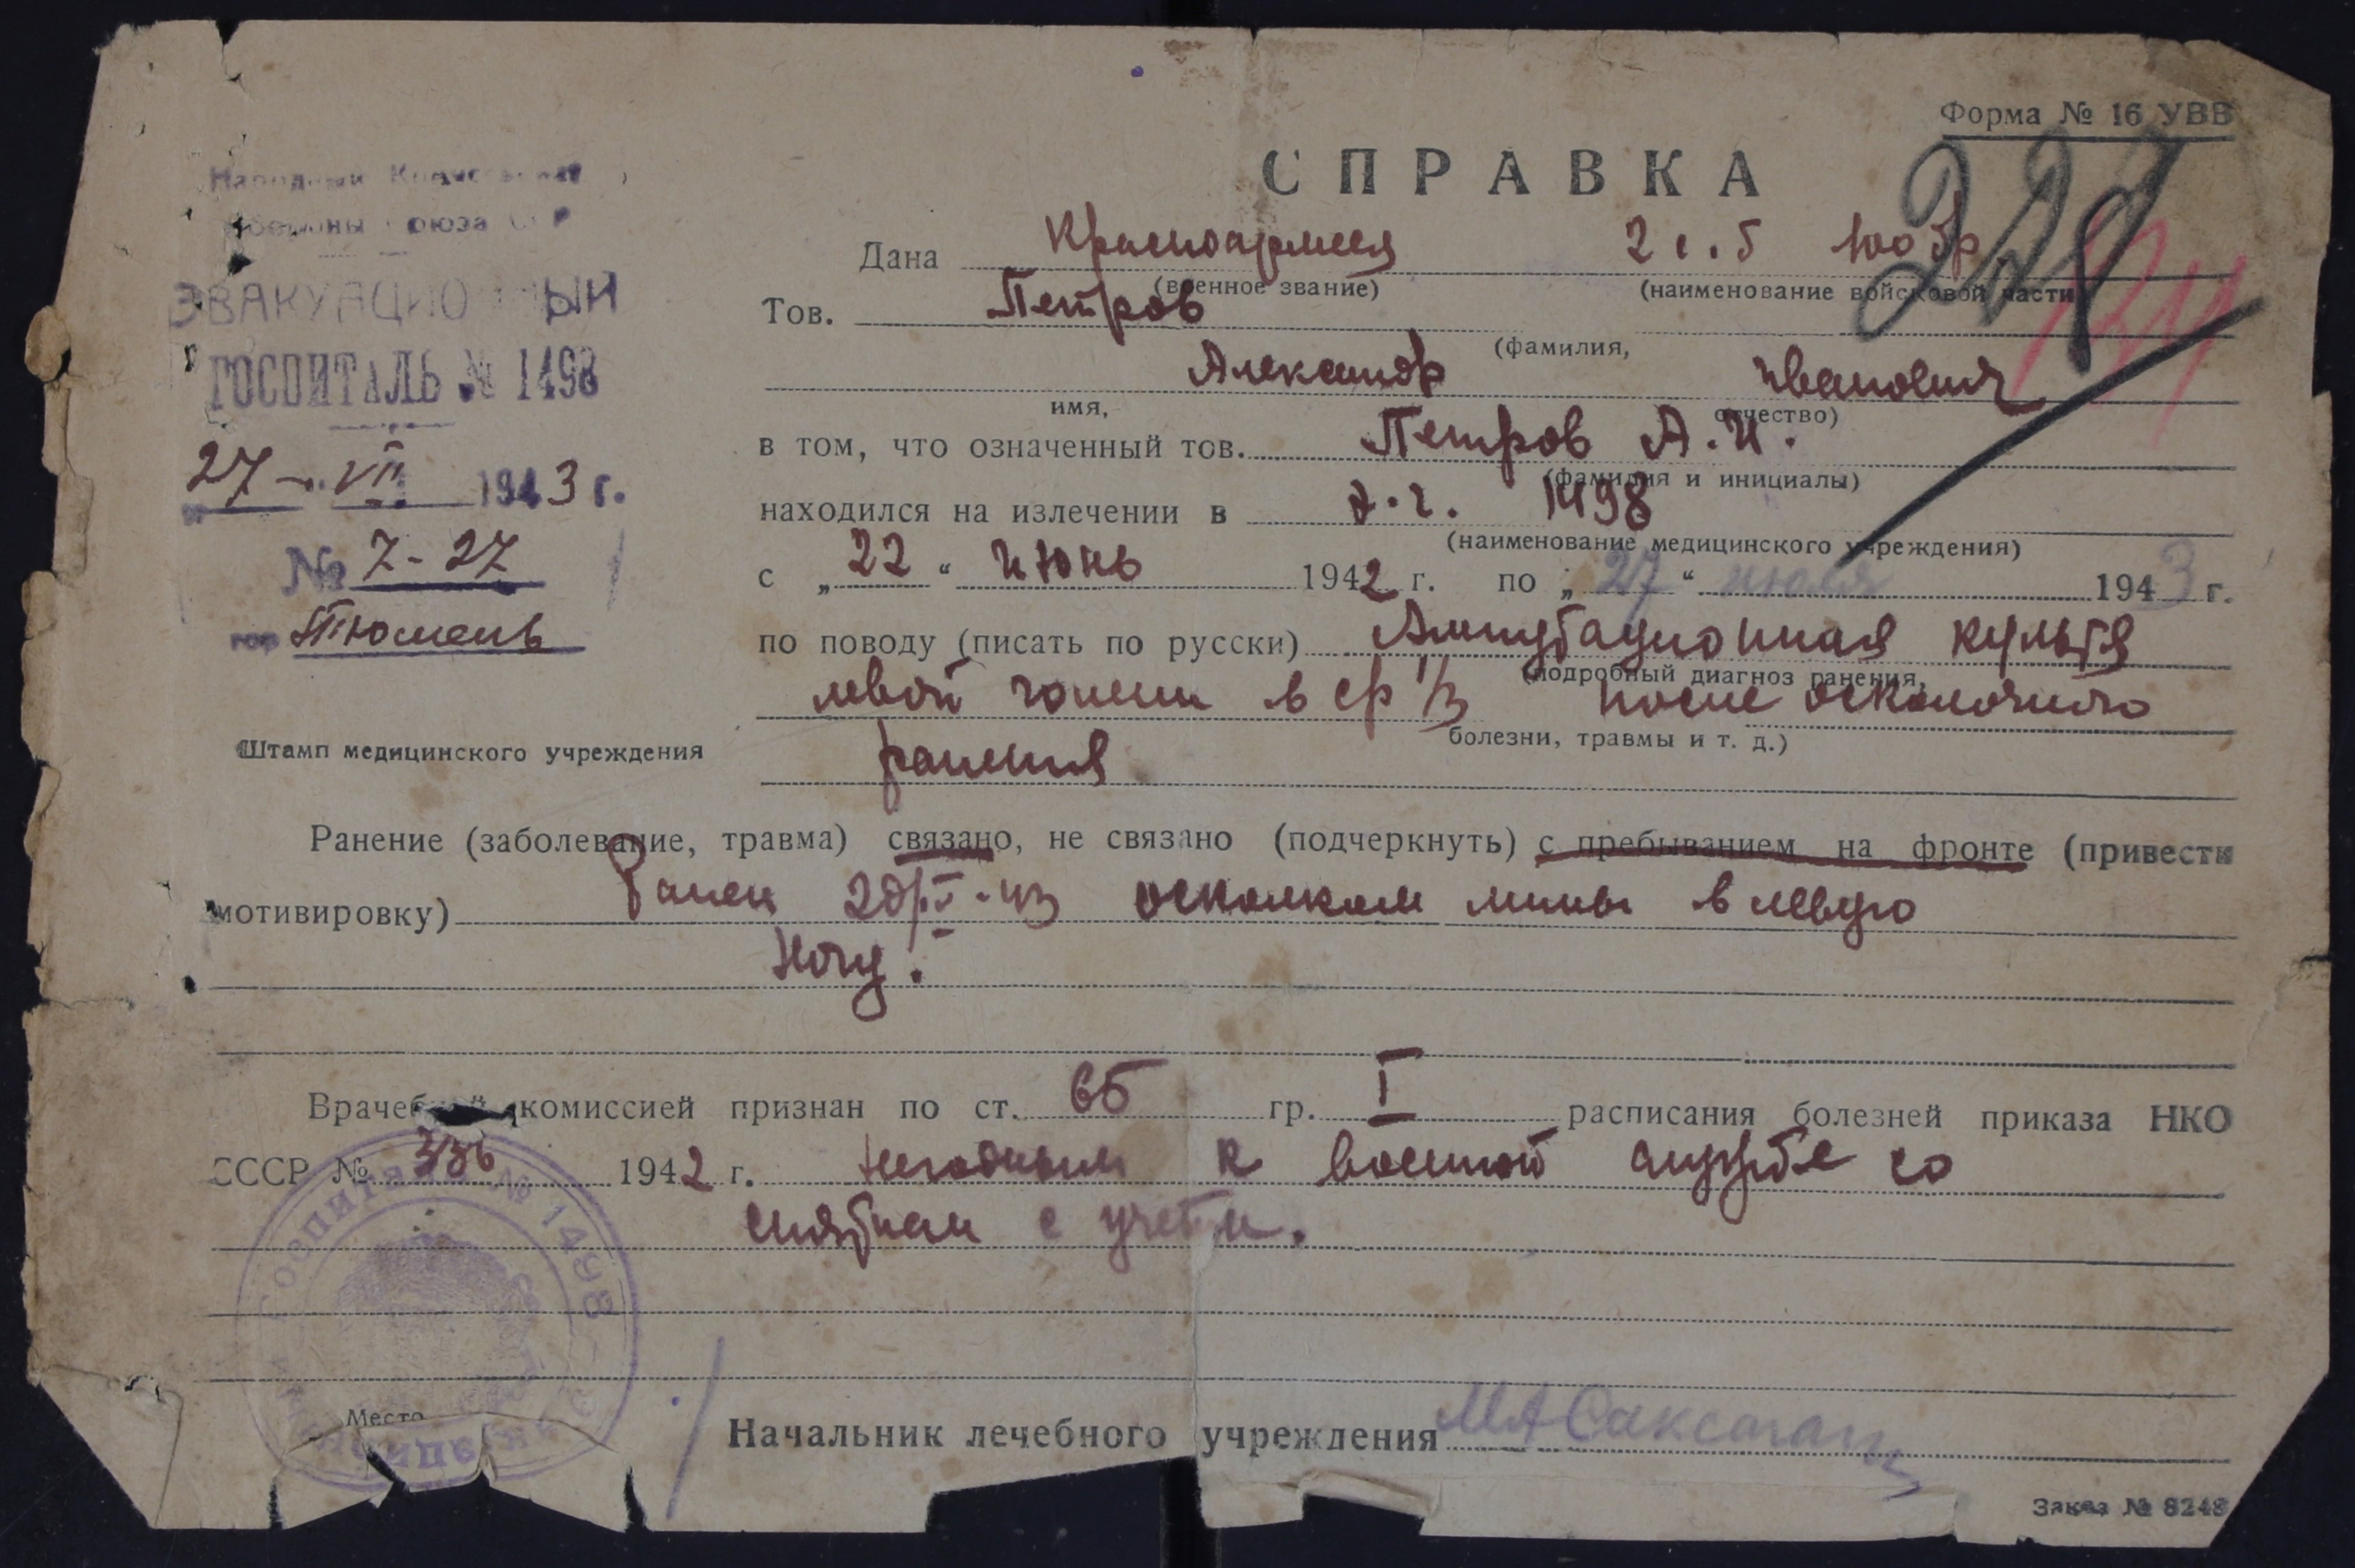 Форма № 16 УВВ
228
СПРАВКА
Народный Комиссариат
Обороны Союза ССР
ЭВАКУАЦИОННЫЙ
ГОСПИТАЛЬ № 1498
27 - VII 1943 г.
№ 7-27
гор Тюмень
Штамп медицинского учреждения
Дана Красноармеец 2 с. б 100 бр
(военное звание) (наименование войсковой части)
Тов. Петров
(фамилия,
Александр Иванович
имя, отчество)
в том, что означенный тов. Петров А. И.
(фамилия и инициалы)
находился на излечении в э.г. 1498
(наименование медицинского учреждения)
с „22“ июнь 1942 г. по „27“ июля 1943 г.
по поводу (писать по русски) Ампутационная культя
(подробный диагноз ранения,
левой голени в ср 1/3 после осколочного
болезни, травмы и т. д.)
ранения
Ранение (заболевание, травма) связано, не связано (подчеркнуть) с пребыванием на фронте (привести
мотивировку) Ранен осколком мины в левую
ногу.
Врачебной комиссией признан по ст. 65 гр. I расписания болезней приказа НКО
СССР № 336 1942 г. негодным к военной службе со
снятием с учета.
Госпиталь № 1498
Место
Начальник лечебного учреждения
Заказ № 8248